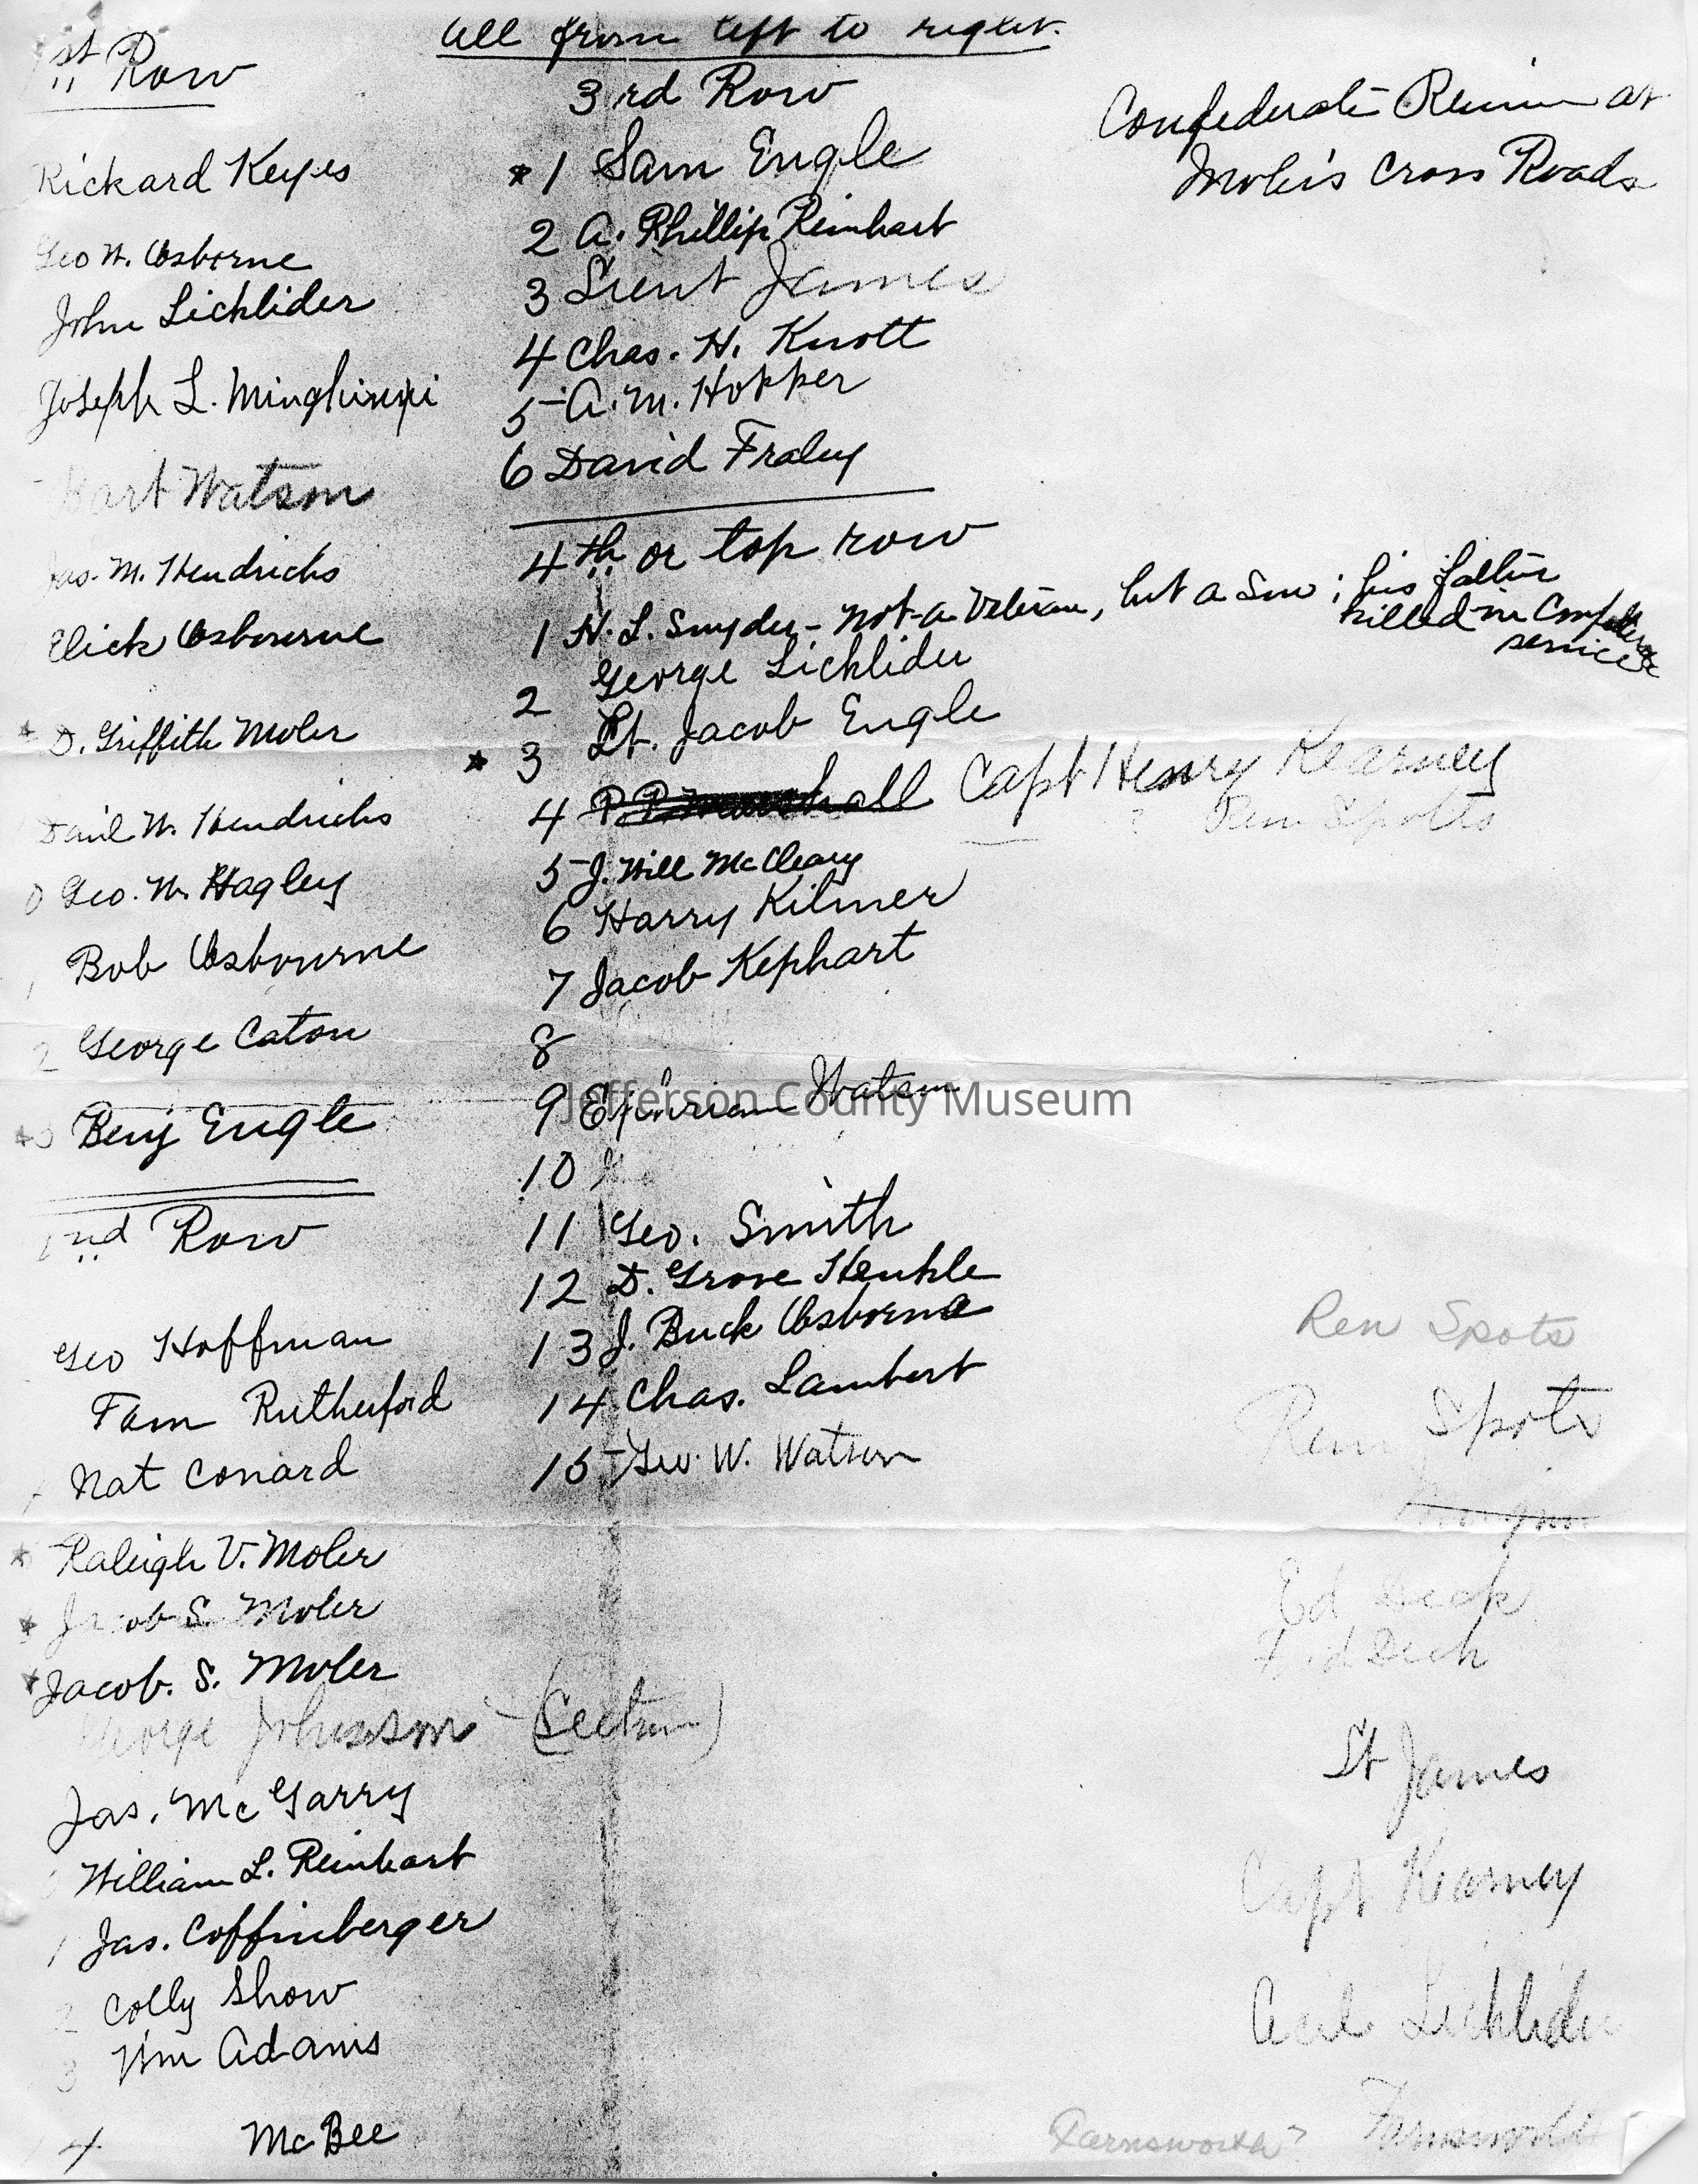 All from left to right.
1st Row
Rickard Keyes
Geo W. Osborne
John Lichlider
Joseph L. Minghinni
Hart Watson
Jas. M. Hendricks
Elick Osbourne
* D. Griffith Moler
Danl W. Hendricks
0 Geo. W. Hagley
1 Bob Osbourne
2 George Caton
*3 Benj Engle
2nd Row
Geo Hoffman
Tom Rutherford
Nat Conard
* Raleigh V. Moler
* Jacob S. Moler
* Jacob. S. Moler
George Johnson - (Section)
Jas. McGarry
William L. Reinhart
1 Jas. Coffinberger
2 Colly Show
3 Wm Adams
4 McBee
3rd Row
*1 Sam Engle
2 A. Phillip Reinhart
3 Lieut James
4 Chas. H. Knott
5 A. M. Hopper
6 David Fraley
4th or top row
1 H. L. Snyder - not a Veteran, but a Son; his father
killed in Confederate
service
2 George Lichlider
* 3 Lt. Jacob Engle
4 Capt Henry Kearney
? Ren Spotts
5 J. Will McCleary
6 Harry Kilmer
7 Jacob Kephart
8
9 Ephriam Watson
10
11 Geo. Smith
12 D. Grove Henkle
13 J. Buck Osborne
14 Chas. Lambert
15 Geo. W. Watson
Confederate Reunion at
Moler's Cross Roads
Ren Spots
Ren Spots
Ed Deck
Ed Deck
Lt James
Capt Kearney
Lichlider
Farnsworth? Farnsworth
Jefferson County Museum